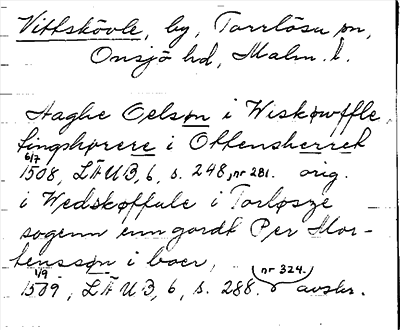 Vittskövle, by, Torrlösa sn,
Onsjö hd, Malm. l.
Aaghe Oelsøn i Wiskøwffle
tingshørere i Ottensherret
6/7 1508, LÄUB, 6, s. 248, nr 281. orig.
i Wedskøffule i Torløsze
sogenn enn gordt Per Mor-
tenssøn i boer,
1/9 1509, LÄUB, 6, s. 288. (nr 324.) avskr.